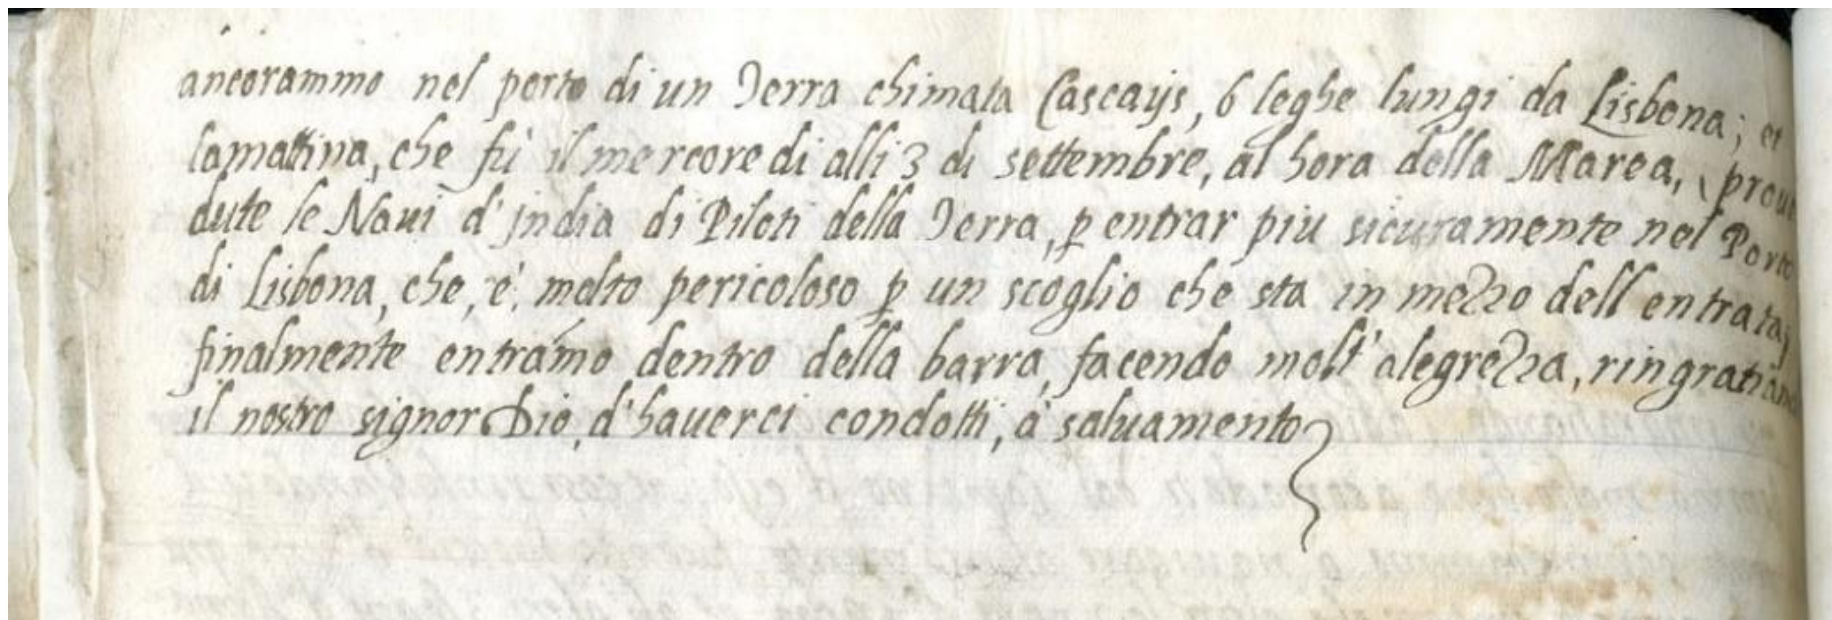 ancorammo nel porto di un Terra chimata Cascays, 6 leghe lungi da Lisbona; et
lamattina, che fù il mercore di alli 3 di settembre, al hora della Marea, prove
dute le Naui d'India di Piloti della Terra, p entrar piu sicuramente nel Porto
di Lisbona, che, è, molto pericoloso p un scoglio che sta in mezzo dell entrata;
finalmente entrámo dentro della barra, facendo molt' alegrezza, ringratiando
il nostro signor Dio, d'hauerci condotti, à saluamento